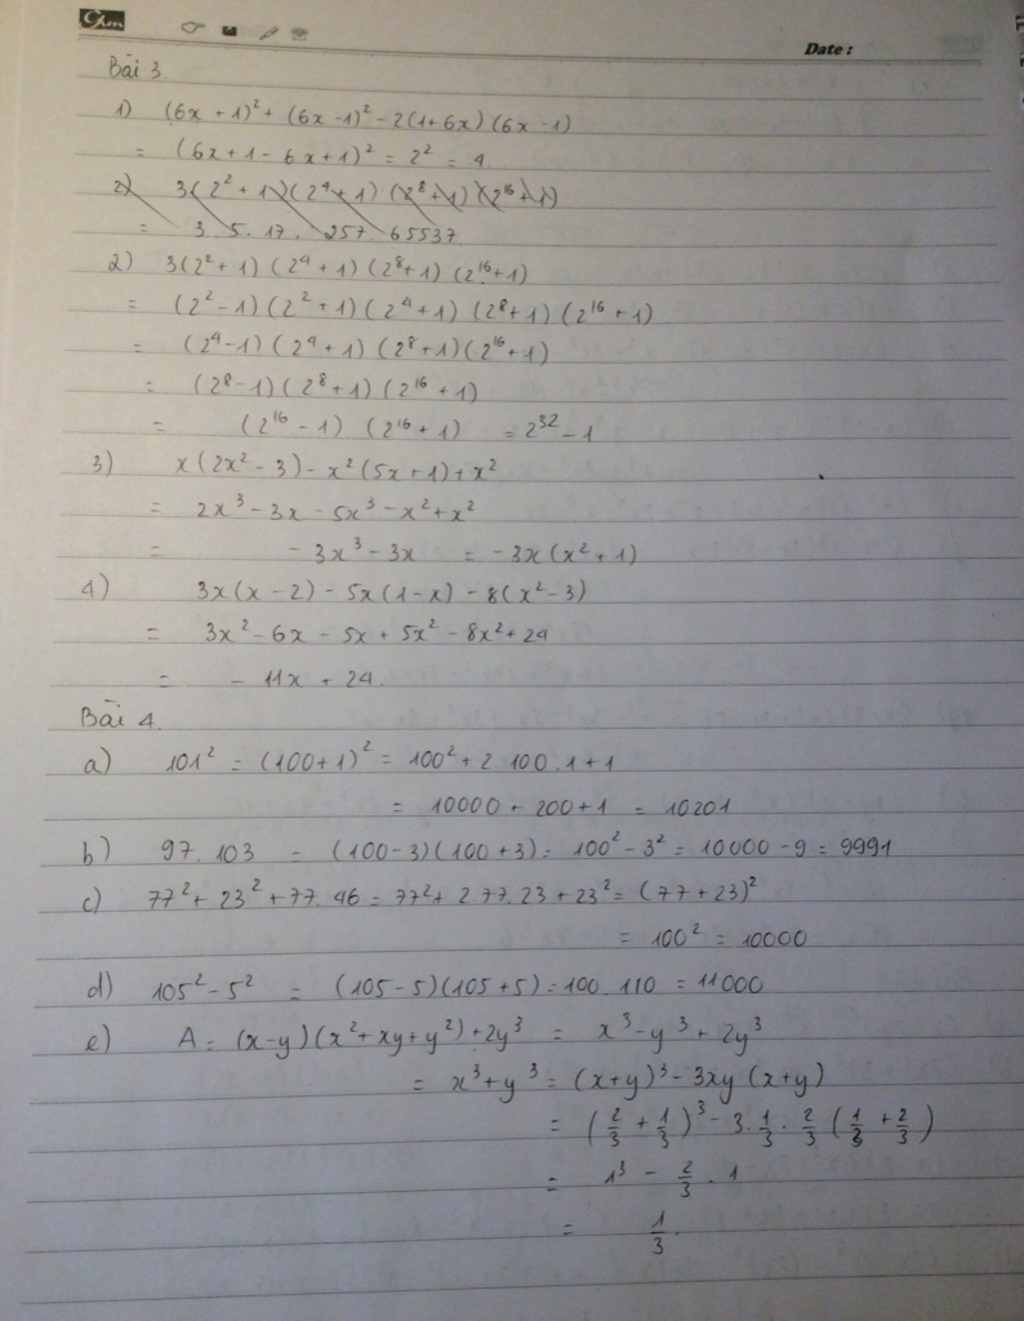 Chm
Date :
Bài 3.
1) (6x + 1)² + (6x - 1)² - 2(1 + 6x)(6x - 1)
= (6x + 1 - 6x + 1)² = 2² = 4
2) 3(2² + 1)(2⁴ + 1)(2⁸ + 1)(2¹⁶ + 1)
= 3. 5. 17. 257. 65537
2) 3(2² + 1)(2⁴ + 1)(2⁸ + 1)(2¹⁶ + 1)
= (2² - 1)(2² + 1)(2⁴ + 1)(2⁸ + 1)(2¹⁶ + 1)
= (2⁴ - 1)(2⁴ + 1)(2⁸ + 1)(2¹⁶ + 1)
= (2⁸ - 1)(2⁸ + 1)(2¹⁶ + 1)
= (2¹⁶ - 1)(2¹⁶ + 1) = 2³² - 1
3) x(2x² - 3) - x²(5x + 1) + x²
= 2x³ - 3x - 5x³ - x² + x²
= - 3x³ - 3x = - 3x(x² + 1)
4) 3x(x - 2) - 5x(1 - x) - 8(x² - 3)
= 3x² - 6x - 5x + 5x² - 8x² + 24
= - 11x + 24.
Bài 4.
a) 101² = (100 + 1)² = 100² + 2.100.1 + 1
= 10000 + 200 + 1 = 10201
b) 97. 103 = (100 - 3)(100 + 3) = 100² - 3² = 10000 - 9 = 9991
c) 77² + 23² + 77. 46 = 77² + 2.77.23 + 23² = (77 + 23)²
= 100² = 10000
d) 105² - 5² = (105 - 5)(105 + 5) = 100. 110 = 11000
e) A = (x - y)(x² + xy + y²) + 2y³ = x³ - y³ + 2y³
= x³ + y³ = (x + y)³ - 3xy(x + y)
= (2/3 + 1/3)³ - 3. 1/3. 2/3 (1/3 + 2/3)
= 1³ - 2/3 . 1
= 1/3.